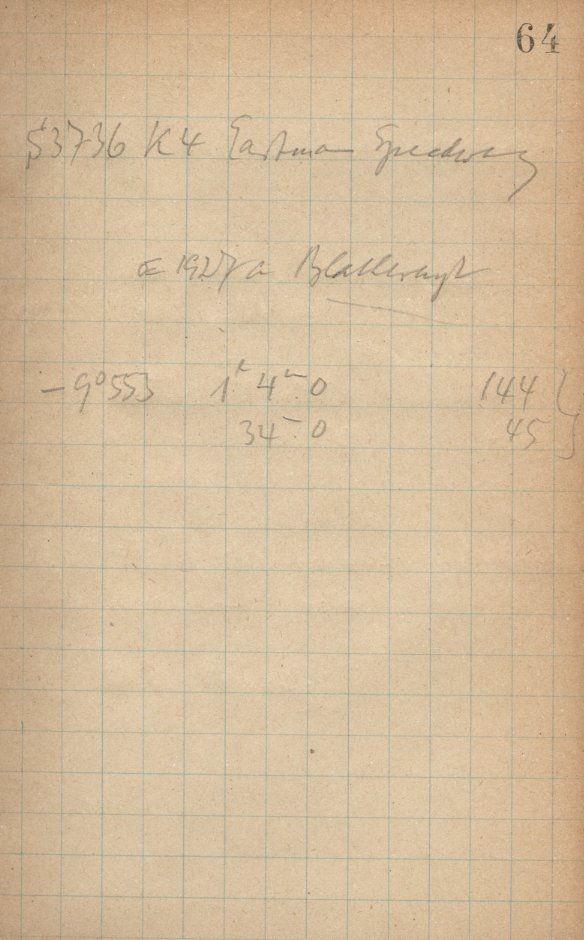 64
S3736 K4 Eastman Speedway
c 1927a Blathwayt
-9°553 1ʰ 4ᵐ.0 144 }
34ᵐ.0 45